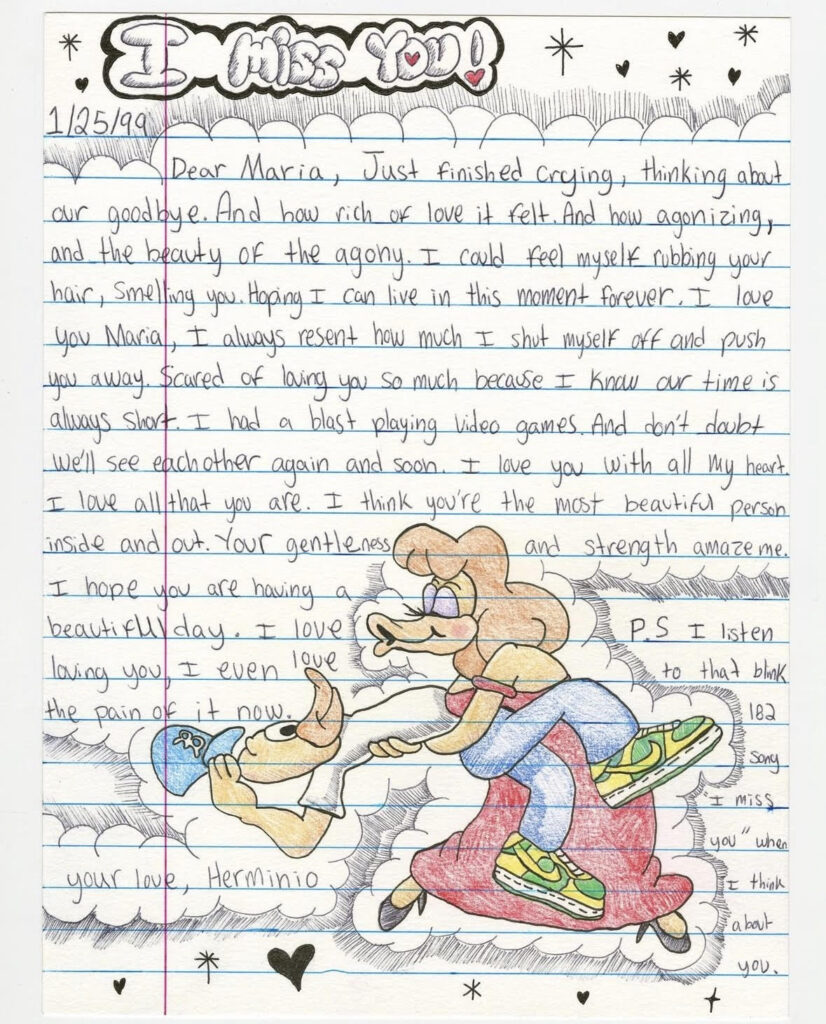 I MISS YOU!
1/25/99
Dear Maria, Just finished crying, thinking about
our goodbye. And how rich of love it felt. And how agonizing,
and the beauty of the agony. I could feel myself rubbing your
hair, smelling you. Hoping I can live in this moment forever. I love
you Maria, I always resent how much I shut myself off and push
you away. Scared of loving you so much because I know our time is
always short. I had a blast playing video games. And don't doubt
we'll see each other again and soon. I love you with all my heart.
I love all that you are. I think you're the most beautiful person
inside and out. Your gentleness and strength amaze me.
I hope you are having a
beautiful day. I love
loving you, I even love
the pain of it now.
your love, Herminio
P.S I listen
to that blink
182
song
"I miss
you" when
I think
about
you.